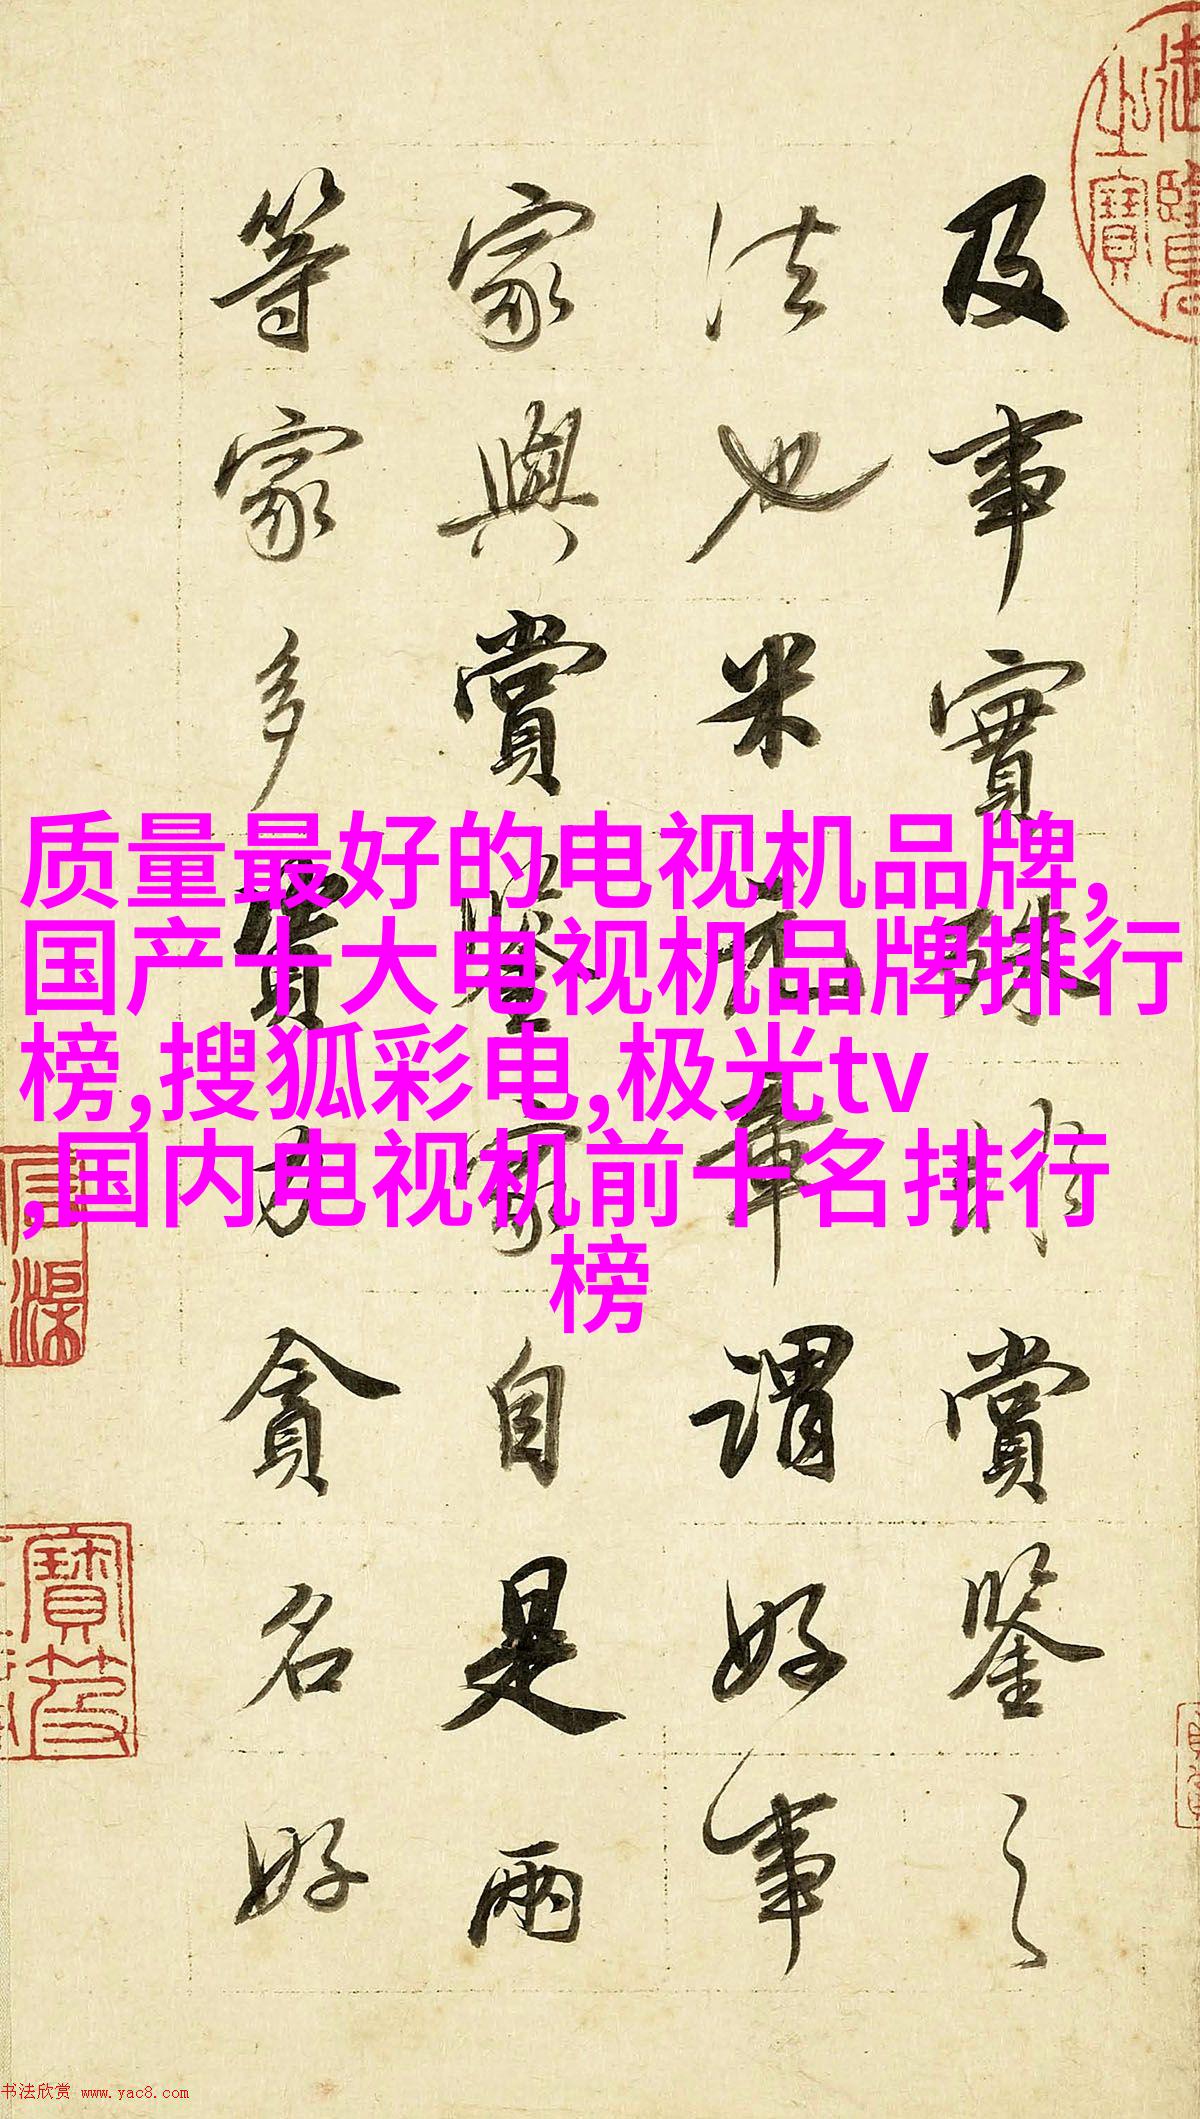 及事實殊賞鑒之
法也米元章謂好事
家與賞鑒家自是兩
等家多資力貪名好
质量最好的电视机品牌,
国产十大电视机品牌排行
榜,搜狐彩电,极光tv
,国内电视机前十名排行
榜
书法欣赏 www.yac8.com